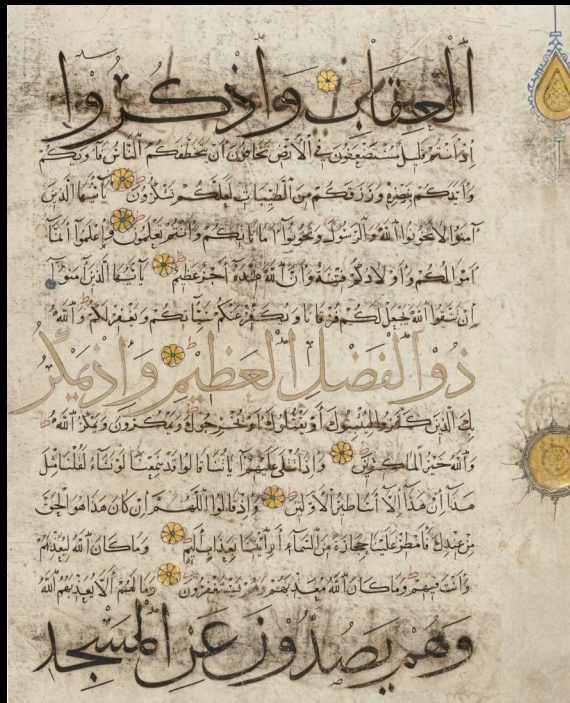 العقاب واذكروا
إذ أنتم قليل مستضعفون في الأرض تخافون أن يتخطفكم الناس فآويكم
وأيدكم بنصره ورزقكم من الطيبات لعلكم تشكرون يأيها الذين
آمنوا لا تخونوا الله والرسول وتخونوا أماناتكم وأنتم تعلمون واعلموا أنما
أموالكم وأولادكم فتنة وأن الله عنده أجر عظيم يأيها الذين آمنوا
إن تتقوا الله يجعل لكم فرقانا ويكفر عنكم سيئاتكم ويغفر لكم والله
ذو الفضل العظيم وإذ يمكر
بك الذين كفروا ليثبتوك أو يقتلوك أو يخرجوك ويمكرون ويمكر الله
والله خير الماكرين وإذا تتلى عليهم آياتنا قالوا قد سمعنا لو نشاء لقلنا مثل
هذا إن هذا إلا أساطير الأولين وإذ قالوا اللهم إن كان هذا هو الحق
من عندك فأمطر علينا حجارة من السماء أو ائتنا بعذاب أليم وما كان الله ليعذبهم
وأنت فيهم وما كان الله معذبهم وهم يستغفرون وما لهم ألا يعذبهم الله
وهم يصدون عن المسجد